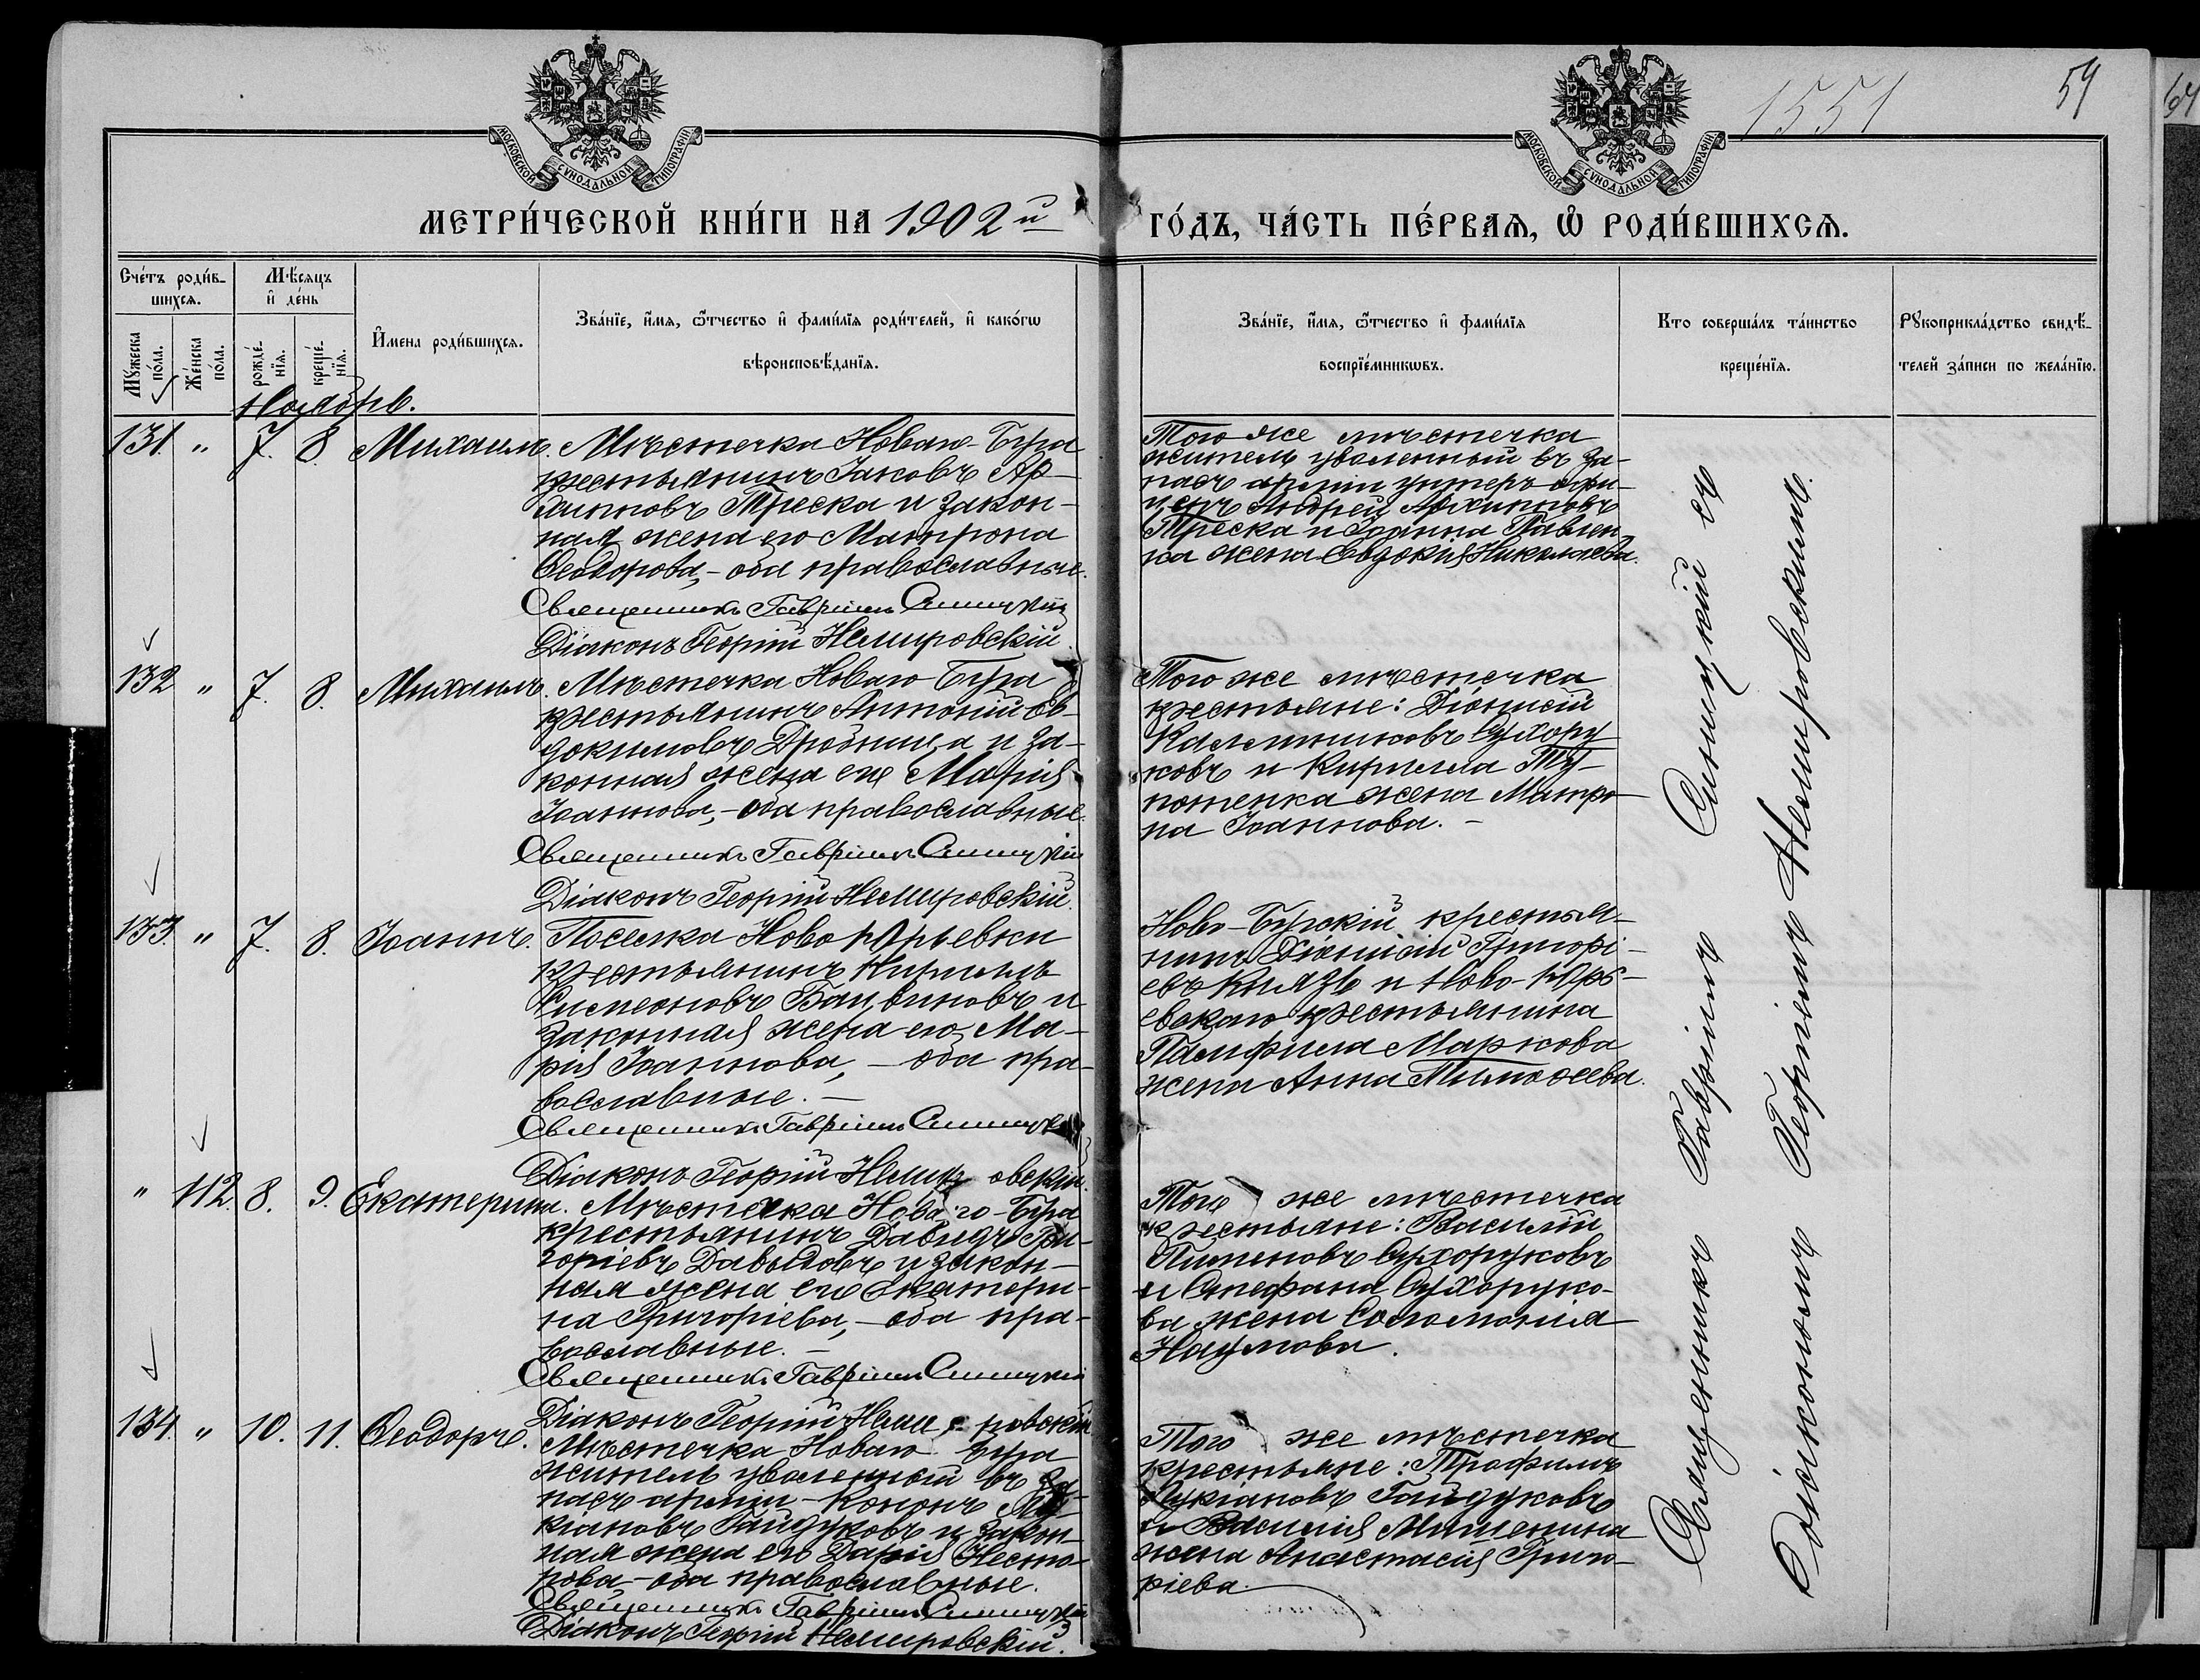 1551
54
64
МОСКОВСКОЙ СѴНОДАЛЬНОЙ ТИПОГРАФІИ
МОСКОВСКОЙ СѴНОДАЛЬНОЙ ТИПОГРАФІИ
МЕТРИ́ЧЕСКОЙ КНИ́ГИ НА 1902й ГО́ДЪ, ЧА́СТЬ ПЕ́РВАѦ, Ѡ҆ РОДИ́ВШИХСѦ.
Сче́тъ роди́в-
шихсѧ.
Мꙋ́жеска
по́ла.
Же́нска
по́ла.
Мѣ́сѧцъ
и҆ де́нь
рожде́-
нїѧ.
креще́-
нїѧ.
И҆мена роди́вшихсѧ.
Зва́нїе, и҆́мѧ, ѻ҆́тчество и҆ фами́лїѧ роди́телей, и҆ како́гѡ
вѣроисповѣ́данїѧ.
Зва́нїе, и҆́мѧ, ѻ҆́тчество и҆ фами́лїѧ
воспрїе́мникѡвъ.
Кто соверша́лъ та́инство
креще́нїѧ.
Рꙋкоприкла́дство свидѣ́-
телей за́писи по жела́нїю.
Ноябрь.
131. " 7. 8. Михаилъ.
Мѣстечка Новаго-Буга
крестьянинъ Іаковъ Ар-
хипповъ Треска и закон-
ная жена его Матрона
Ѳеодорова,- оба православные.
Священникъ Гавріилъ Синицкій
Діаконъ Георгій Немировскій.
Того-же мѣстечка
житель уволенный въ за-
пасъ арміи унтеръ-офи-
церъ Андрей Архипповъ
Треска и Іоанна Павлен-
ка жена Евдокія Николаева.
132 " 7. 8. Михаилъ.
Мѣстечка Новаго Буга
крестьянинъ Антоній Ев-
докимовъ Дробница и за-
конная жена его Марія
Іоаннова,- оба православные.
Священникъ Гавріилъ Синицкій
Діаконъ Георгій Немировскій.
Того же мѣстечка
крестьяне: Діонисій
Каллиниковъ Сухору
ковъ и Кирилла Ту-
потенка жена Матро-
на Іоаннова.-
133. " 7. 8. Іоаннъ.
Поселка Ново Юрьевки
крестьянинъ Кириллъ
Симеоновъ Бай, виновъ и
законная жена его Ма-
рія Іоаннова,- оба пра-
вославные.-
Священникъ Гавріилъ Синицкій
Діаконъ Георгій Немировскій.
Ново-Бугскій крестья-
нинъ Діонисій Григорі-
евъ Князь и Ново-Юрь-
евскаго крестьянина
Памфила Маркова
жена Анна Тимоѳеева.
" 112. 8. 9. Екатерина.
Мѣстечка Новаго-Буга
крестьянинъ Давидъ Гри-
горіевъ Давыдовъ и закон-
ная жена его Екатери-
на Григоріева,- оба пра-
вославные.-
Священникъ Гавріилъ Синицкій
Діаконъ Георгій Немировскій
Того же мѣстечка
крестьяне: Василій
Пименовъ Сухоруковъ
и Стефана Сухоруко-
ва жена Соломонія
Наумова.
134. " 10. 11. Ѳеодоръ.
Мѣстечка Новаго Буга
житель уволенный въ за-
пасъ арміи-Кононъ Лу-
кіановъ Гайдуковъ и закон-
ная жена его Дарія Несто-
рова,- оба православные.
Священникъ Гавріилъ Синицкій
Діаконъ Георгій Немировскій.
Того же мѣстечка
крестьяне: Трофимъ
Лукіановъ Гайдуковъ
и Василія Мишенина
жена Анастасія Григо-
ріева.
Священникъ Гавріилъ Синицкій съ
Діакономъ Георгіемъ Немировскимъ.